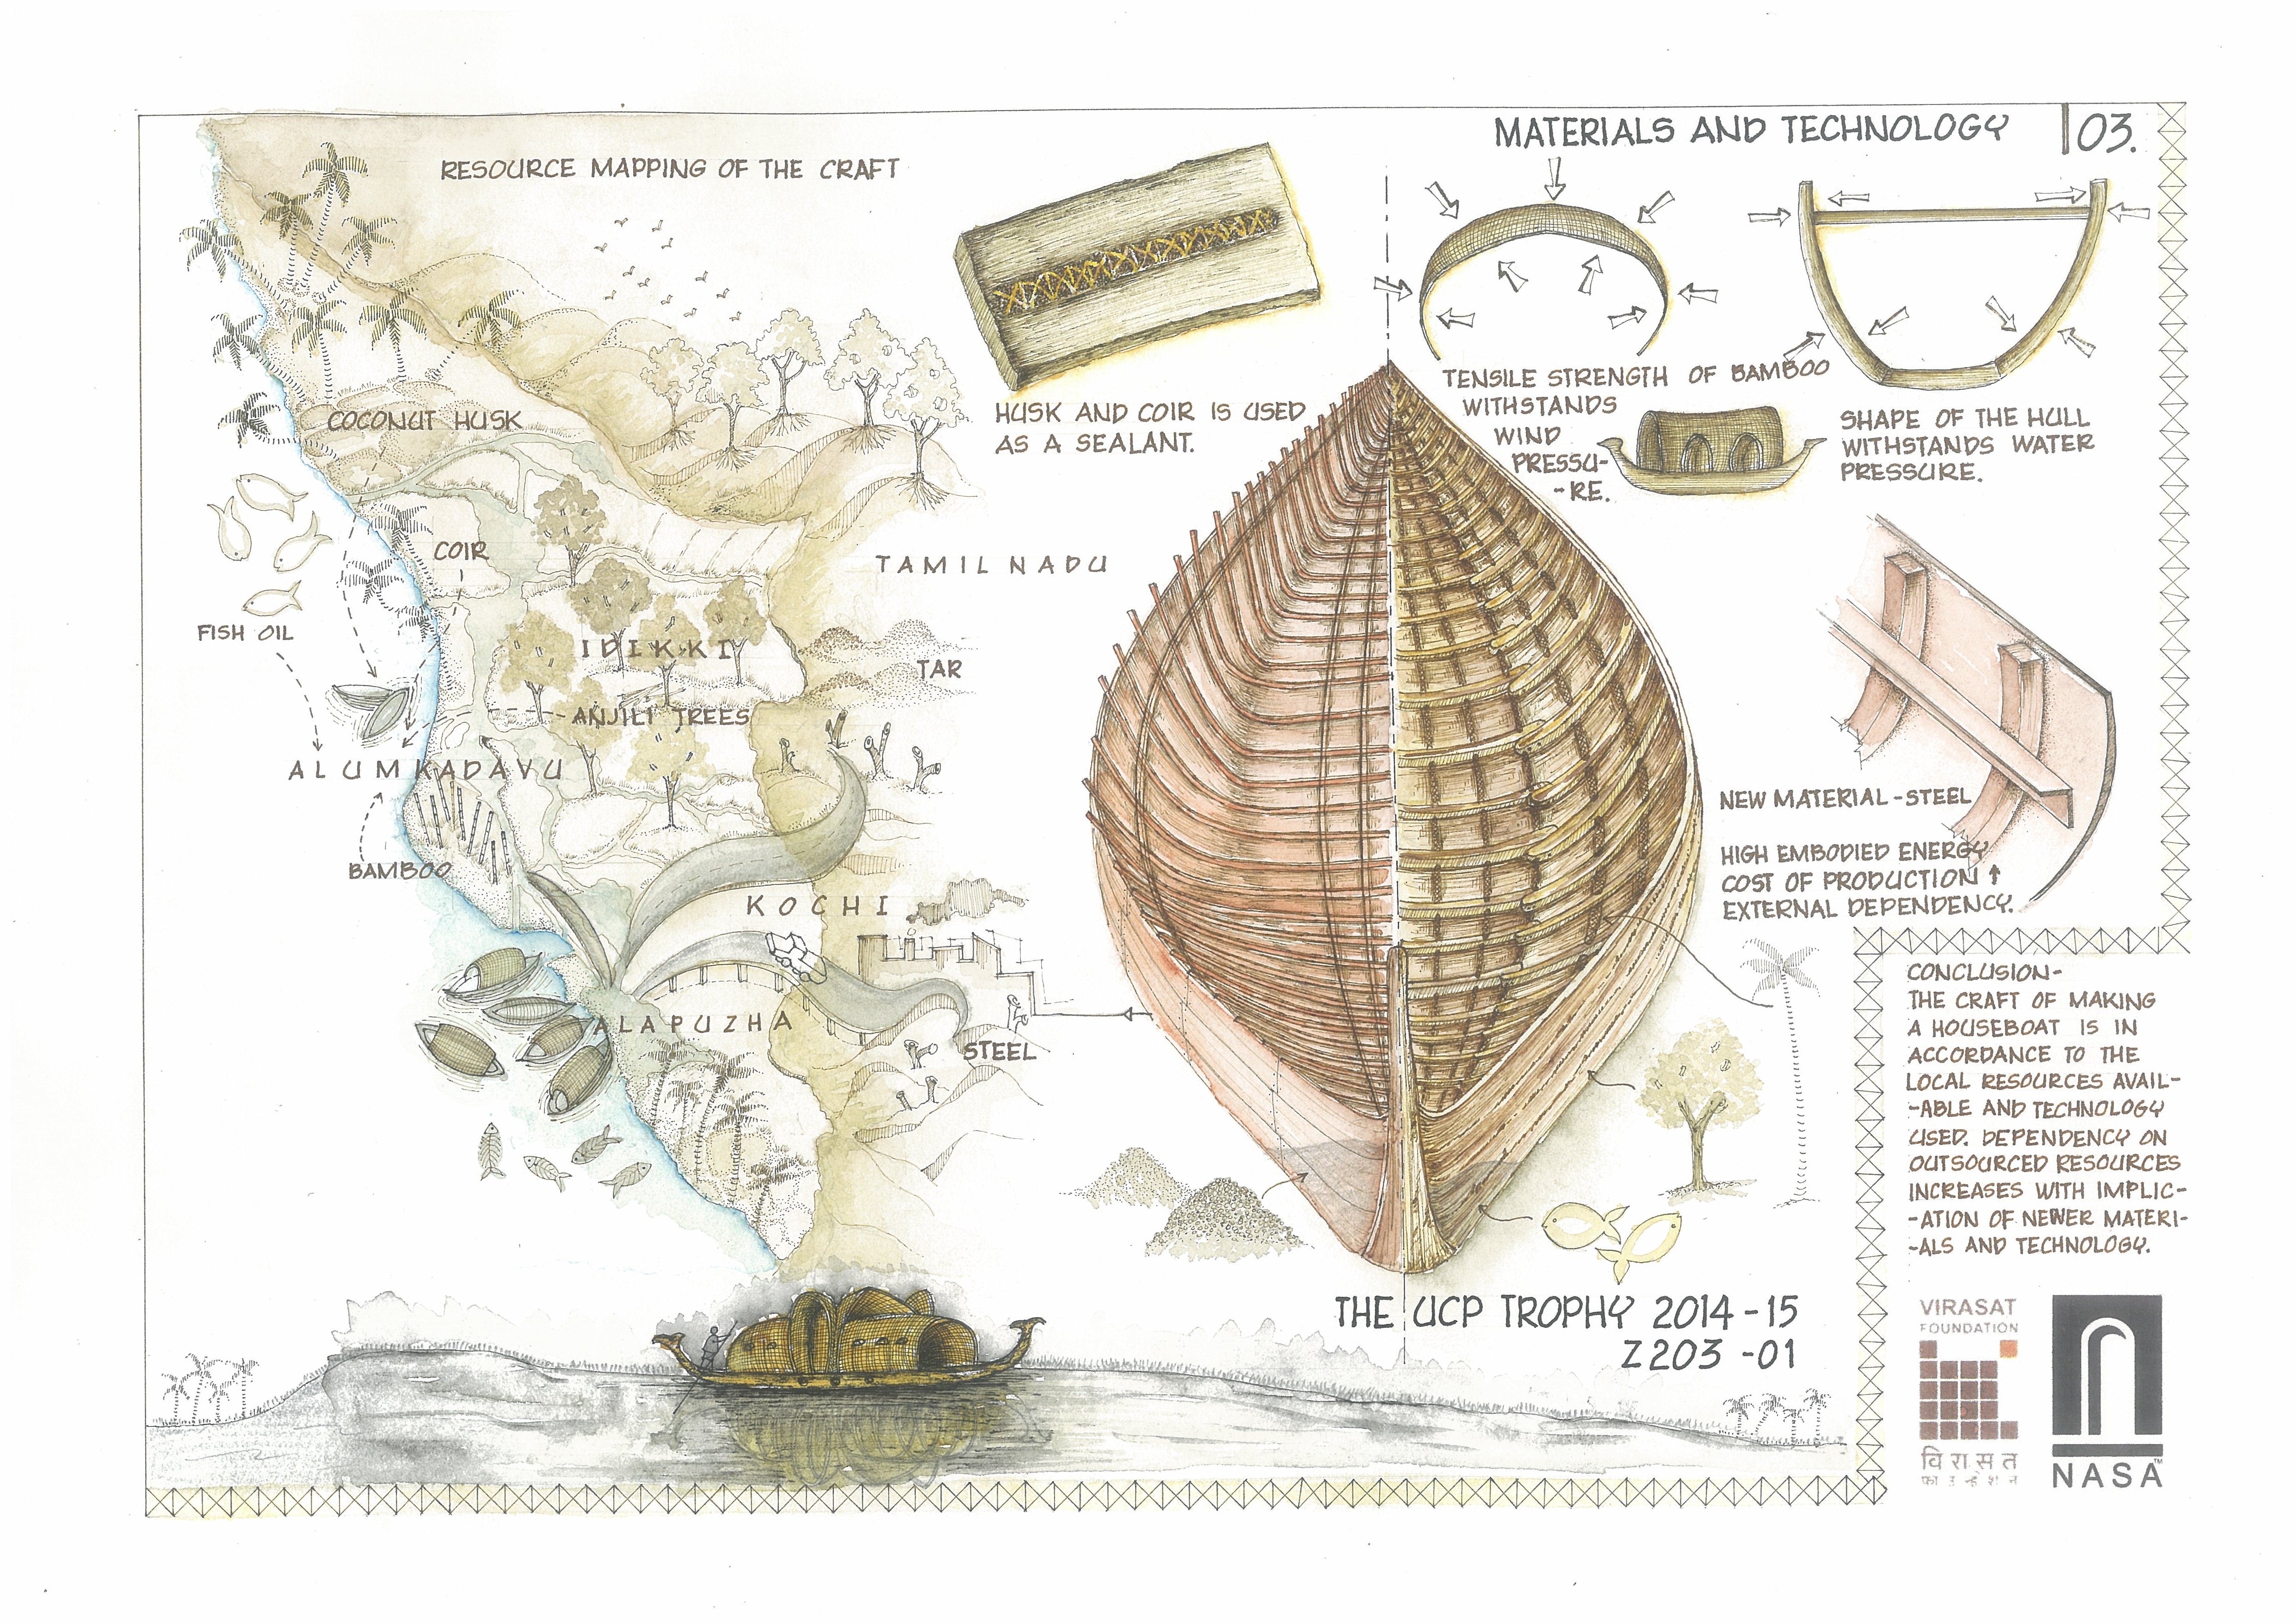 MATERIALS AND TECHNOLOGY
03.
RESOURCE MAPPING OF THE CRAFT
COCONUT HUSK
COIR
FISH OIL
IDIKKI
ANJILI TREES
ALUMKADAVU
BAMBOO
TAMIL NADU
TAR
KOCHI
ALAPUZHA
STEEL
HUSK AND COIR IS USED
AS A SEALANT.
TENSILE STRENGTH OF BAMBOO
WITHSTANDS
WIND
PRESSU-
-RE.
SHAPE OF THE HULL
WITHSTANDS WATER
PRESSURE.
NEW MATERIAL-STEEL
HIGH EMBODIED ENERGY
COST OF PRODUCTION ↑
EXTERNAL DEPENDENCY.
CONCLUSION-
THE CRAFT OF MAKING
A HOUSEBOAT IS IN
ACCORDANCE TO THE
LOCAL RESOURCES AVAIL-
-ABLE AND TECHNOLOGY
USED. DEPENDENCY ON
OUTSOURCED RESOURCES
INCREASES WITH IMPLIC-
-ATION OF NEWER MATERI-
-ALS AND TECHNOLOGY.
THE UCP TROPHY 2014-15
Z203-01
VIRASAT
FOUNDATION
विरासत
फाउन्डेशन
NASA
TM